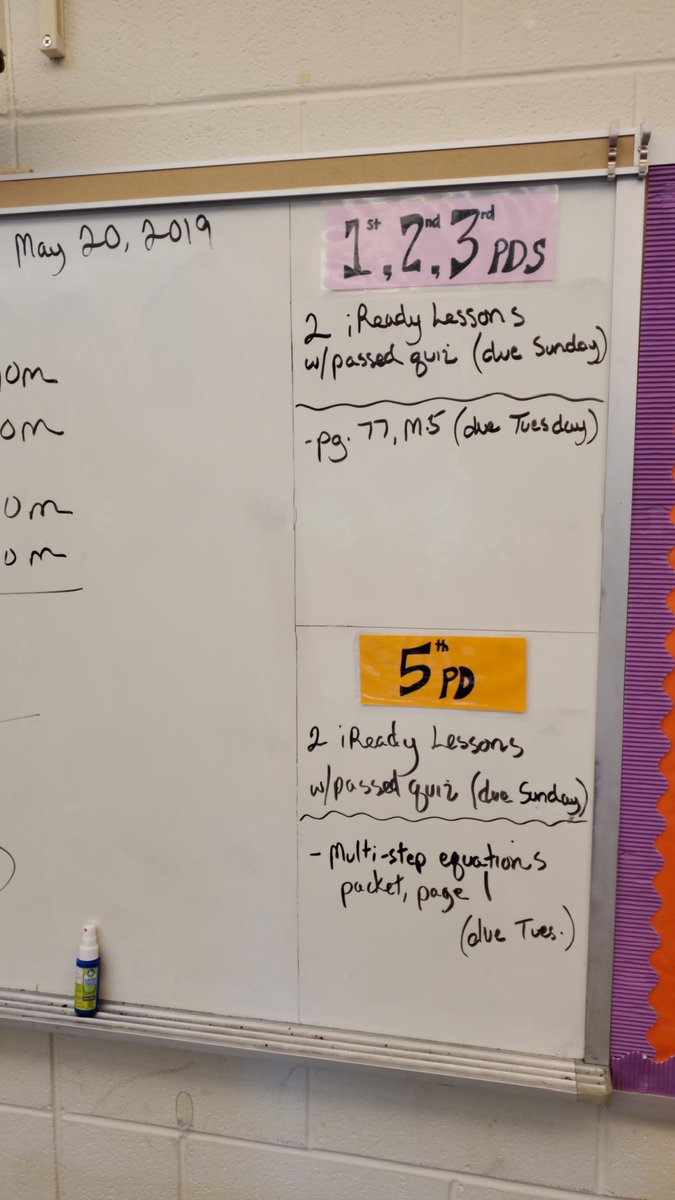 May 20, 2019
0m
0m
0m
0m
1st, 2nd, 3rd PDS
2 iReady Lessons
w/passed quiz (due Sunday)
-pg. 77, M.5 (due Tuesday)
5th PD
2 iReady Lessons
w/passed quiz (due Sunday)
- Multi-step equations
packet, page 1
(due Tues.)